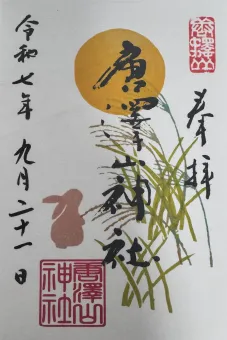 奉拝
唐澤山
唐澤山神社
令和七年九月二十一日
唐澤山
神社